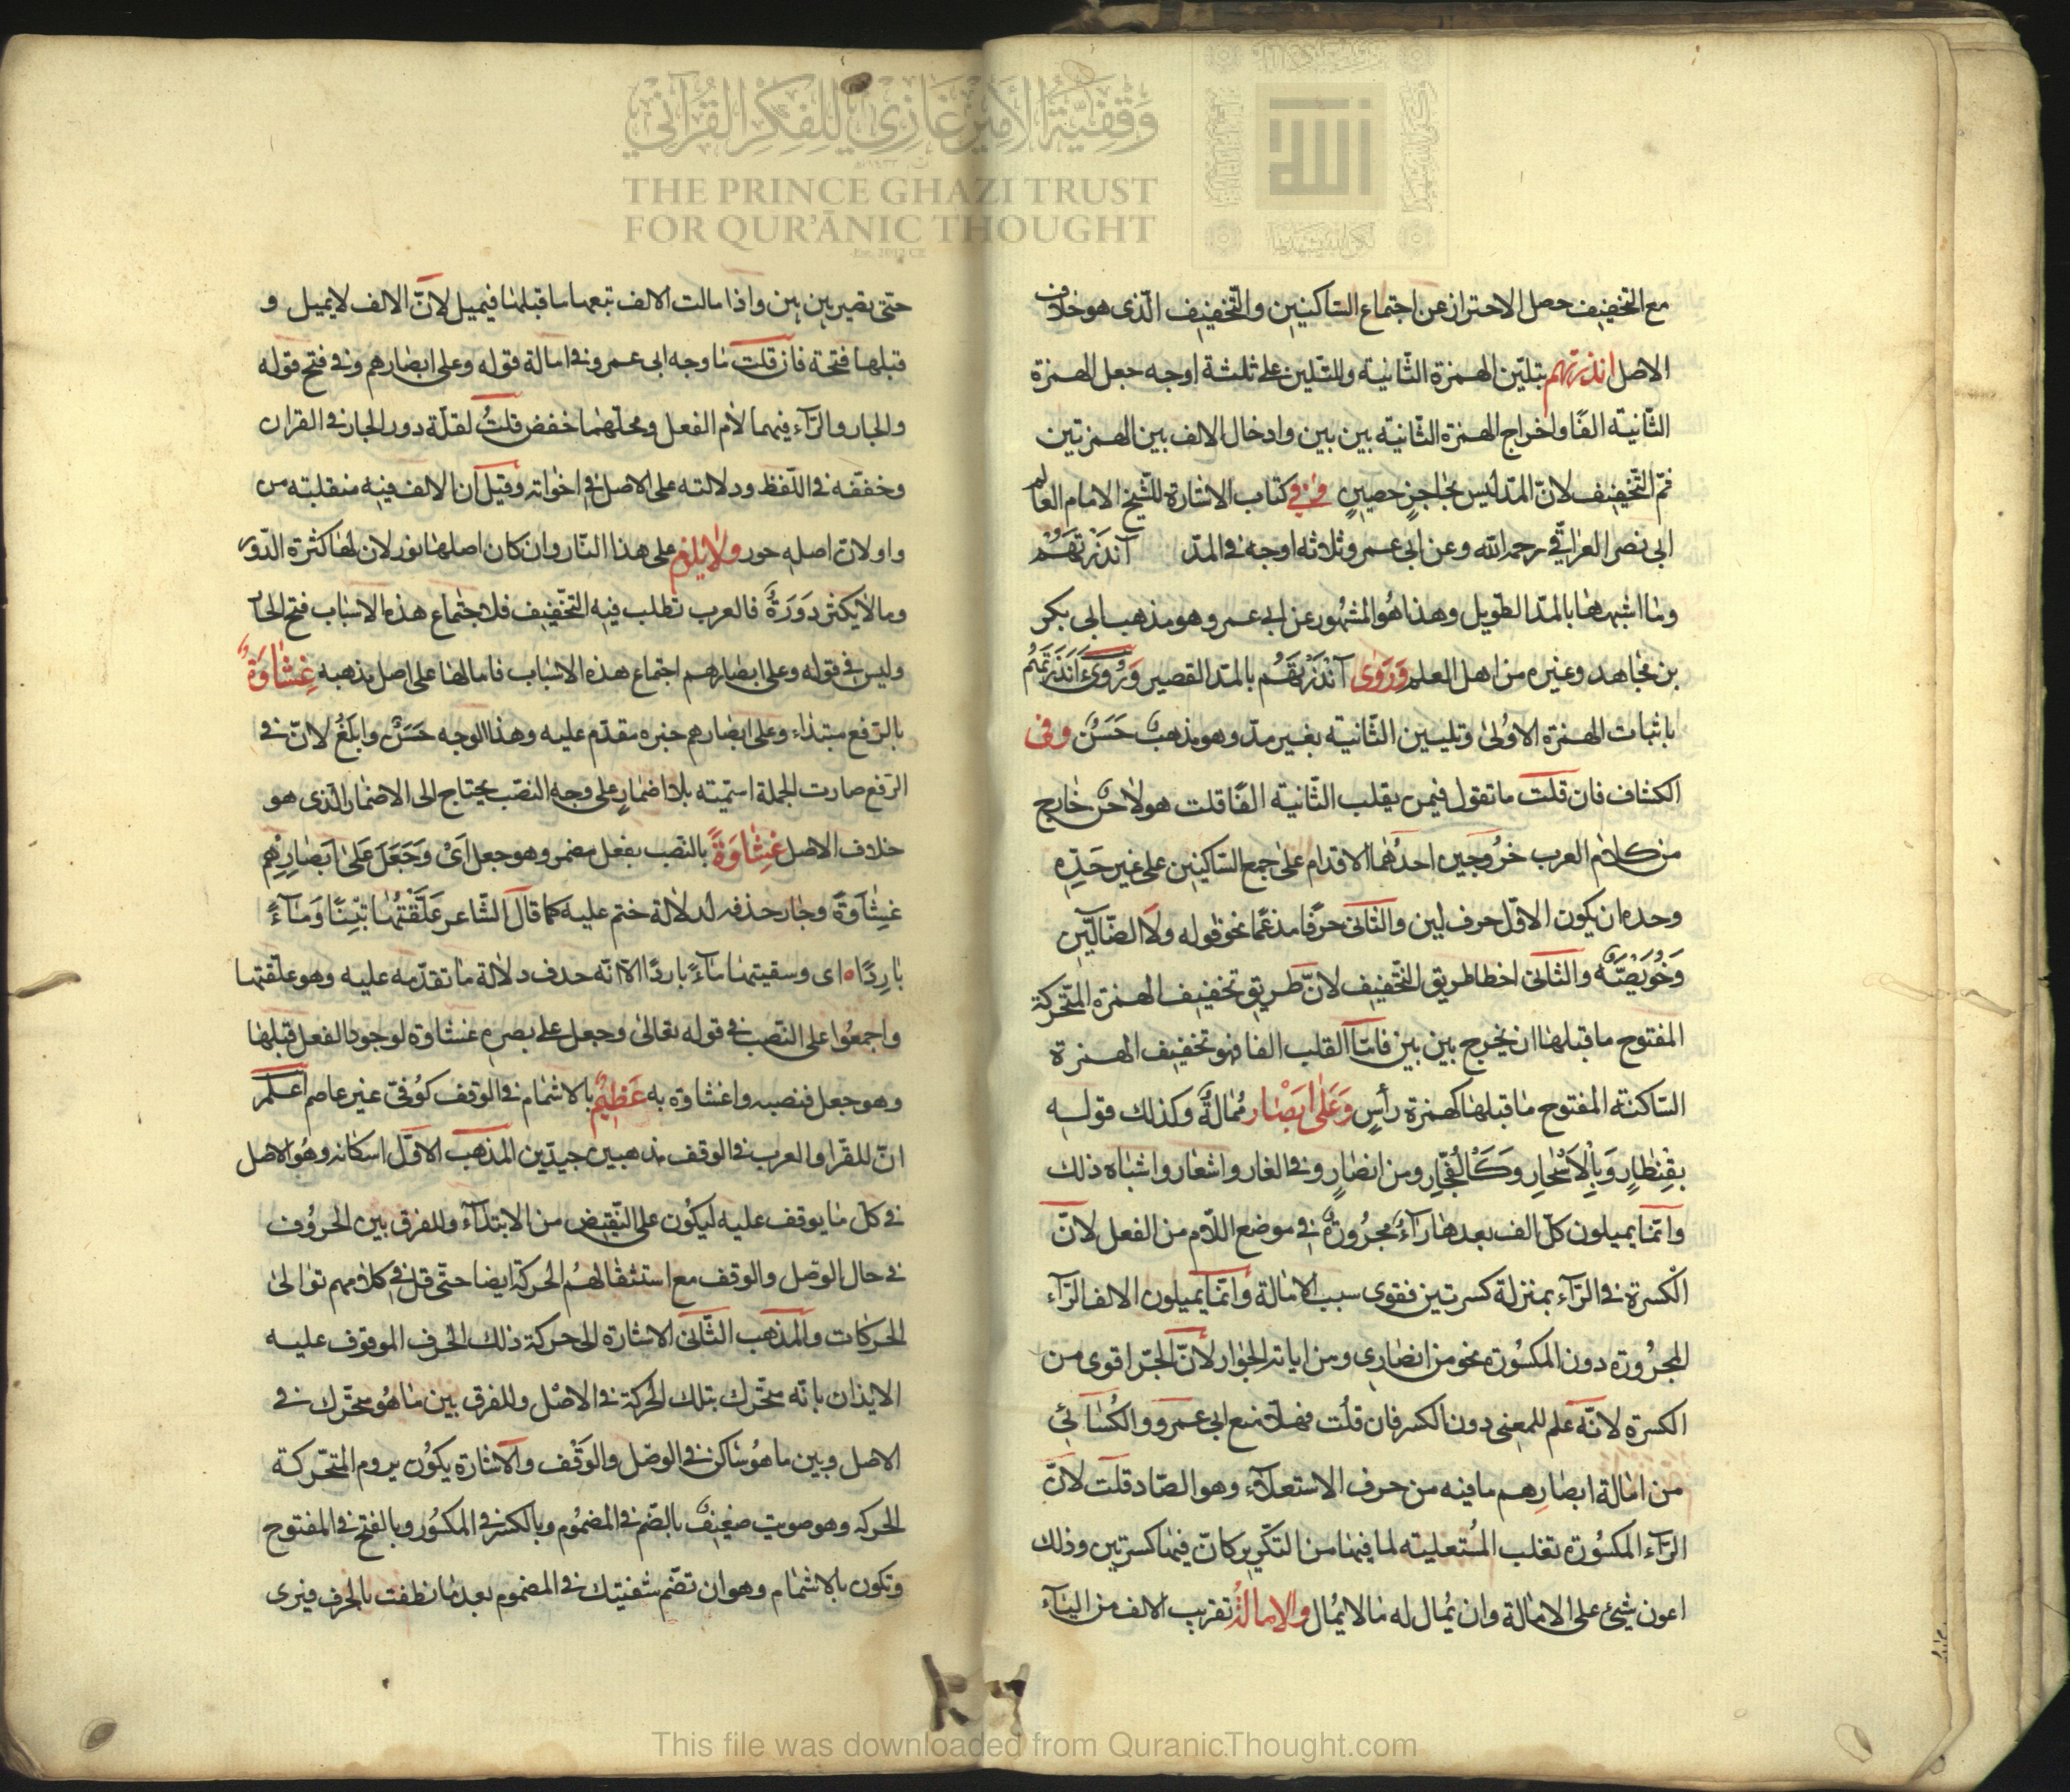 وقفية الأمير غازي للفكر القرآني
THE PRINCE GHAZI TRUST
FOR QUR'ĀNIC THOUGHT
مع التخفيف حصل الاحتراز عن اجتماع الساكنين والتّخفيف الّذى هو خلاف
الاصل انذرتهم بتليّن الهمزة الثّانية وللتّلين على ثلثة اوجه جعل الهمزة
الثّانية الفًا واخراج الهمزة الثّانية بين بين وادخال الالف بين الهمزتين
ثمّ التّخفيف لانّ المدّ ليس بحاجز حصين وفى كتاب الاشارة للشّيخ الامام العالم
ابى نصر العراقى رحمه الله وعن ابى عمرو ثلاثه اوجه فى المدّ آنذَرْتَهُمْ
وما اشبهها بالمدّ الطّويل وهذا هُو المشهُور عن ابى عمرو وهو مذهب ابى بكر
بن مجاهد وغيره من اهل العلم وَرَوَى آنْذَرْتَهُم بالمدّ القصير وَرُوىَ ءَانَذَرتَهُم
باثبات الهمزة الاوُلىٰ وتليين الثّانية بغير مدّ وهو مذهبٌ حَسَنٌ وفى
الكشاف فان قلت ما تقول فيمن يقلب الثّانية الفًا قلت هو لاحن خارج
من كلام العرب خرُوجين احدُهما الاقدام على جمع السّاكنين على غير حَدِّه
وحده ان يكون الاوّل حرف لين والثّانى حرفًا مدغمًا نحو قوله ولا الضّالّين
وَخُوَيْصَّة والثّانى اخطا طريق التّخفيف لانّ طريق تخفيف الهمزة المتّحركة
المفتوح ما قبلها ان يخرج بين بين فامّا القلب الفا فهو تخفيف الهمزة
السّاكنة المفتوح ما قبلها كهمزة رأسٍ وَعَلىٰ ابَصْار مُمالةٌ وكذلك قوله
بقِنطارٍ وَبالاَسْحارِ وَكَالفُجّارِ ومن انصارٍ وفى الغار واشعار واشباه ذلك
وانّما يميلون كلّ الف بعدها رآءٌ مجرُورةٌ فى موضع اللّام من الفعل لانّ
الكسرة فى الرّآء بمنزلة كسرتين فقوى سبب الامالة وانّما يميلون الالف الرّآء
المجرُورة دون المكسُورة نحو من انصارى ومن اياته الجوار لانّ الجرّ اقوى من
الكسرة لانّه علم للمعنى دون الكسر فان قلُت فهلّا منع ابى عمرو والكُسائى
من امالة ابصارِهم ما فيه من حرف الاستعلآء وهو الصّاد قلت لانّ
الرّآء المكسُورة تغلب المُستعلية لما فيها من التّكرير كانّ فيها كسرتين وذلك
اعون شئ على الامالة وان يُمال له ما لا يُمال والامالةُ تقريب الالف من اليآء
حتّى تصير بين بين واذا مالت الالف تبعها ما قبلها فيميل لانّ الالف لا يميل و
قبلها فتحة فان قلت ما وجه ابى عمرو فى امالة قوله وعلى ابصارهم وفى فتح قوله
والجار والرّآء فيهما لام الفعل ومحلّهما خفض قلتُ لقلّة دور الجار فى القران
وخفّفه فى اللّفظ ودلالته على الاصل فى اخواته وقيل ان الالف فيه منقلبته من
واو لانّ اصله حور ولا يلزم على هذا النّار وان كان اصلها نور لان لها كثرة الدّور
وما لا يكثر دَورَةٌ فالعرب تطلب فيه التخّفيف فلاجتماع هذه الاسباب فتح الجار
وليس فى قوله وعلى ابصارهم اجتماع هذه الاسباب فامالها على اصل مذهبه غِشاوَةٌ
بالرّفع مبتداء وعلى ابصارهم خبره مقدّم عليه وهذا الوجه حَسَنٌ وابلَغُ لانّ فى
الرّفع صارت الجملة اسميّته بلا اضمارٍ على وجه النصّب يحتاج الى الاضمار الّذى هو
خلاف الاصل غِشاوَةً بالنصّب بفعل مضمر وهو جعل اىْ وَجَعَلَ عَلىٰ ابَصارِهِم
غِشاوَةً وجاز حذفه لدلالة ختم عليه كما قال الشّاعر عَلَّفْتُها تبْنًا وَمآءً
بارِدًا ٥ اى وسقيتها مآءً باردًا الّا انّه حدف دلالة ما تقدّمه عليه وهو علّفتها
واجمعُوا على النّصب فى قوله تعالىٰ وجعل على بصره غشاوة لوجود الفعل قبلها
وهو جعل فنصبه واغشاوة به عَظيمٌ بالاشمام فى الوقف كُوفىّ غير عاصم اعلم
انّ للقرّا والعرب فى الوقف مذهبين جيدّين المذهب الاوّل اسكانه وهُو الاصل
فى كلّ ما يوقف عليه ليكُون على النّقيض من الابتدآء وللفرق بين الحروُف
فى حال الوصّل والوقف مع استثقالهمُ الحركة ايضا حتّى قلّ فى كلامهم توالىٰ
الحركات والمذهب الثّانى الاشارة الى حركة ذلك الحرف الموقوف عليه
الايذان بانّه متحّرك بتلك الحركة فى الاصْل وللفرق بين ما هُو متحّرك فى
الاصل وبين ما هُو ساكن فى الوصّل والوَقْف والاشارة يكوُن بروم المتحّركة
الحركه وهو صوت ضعيفٌ بالضّم فى المضمُوم وبالكسر فى المكسُور وبالفتح فى المفتوح
وتكون بالاشمام وهو ان تضّم شفتيك فى المضموم بعد ما نطقت بالحرف فيرى
This file was downloaded from QuranicThought.com